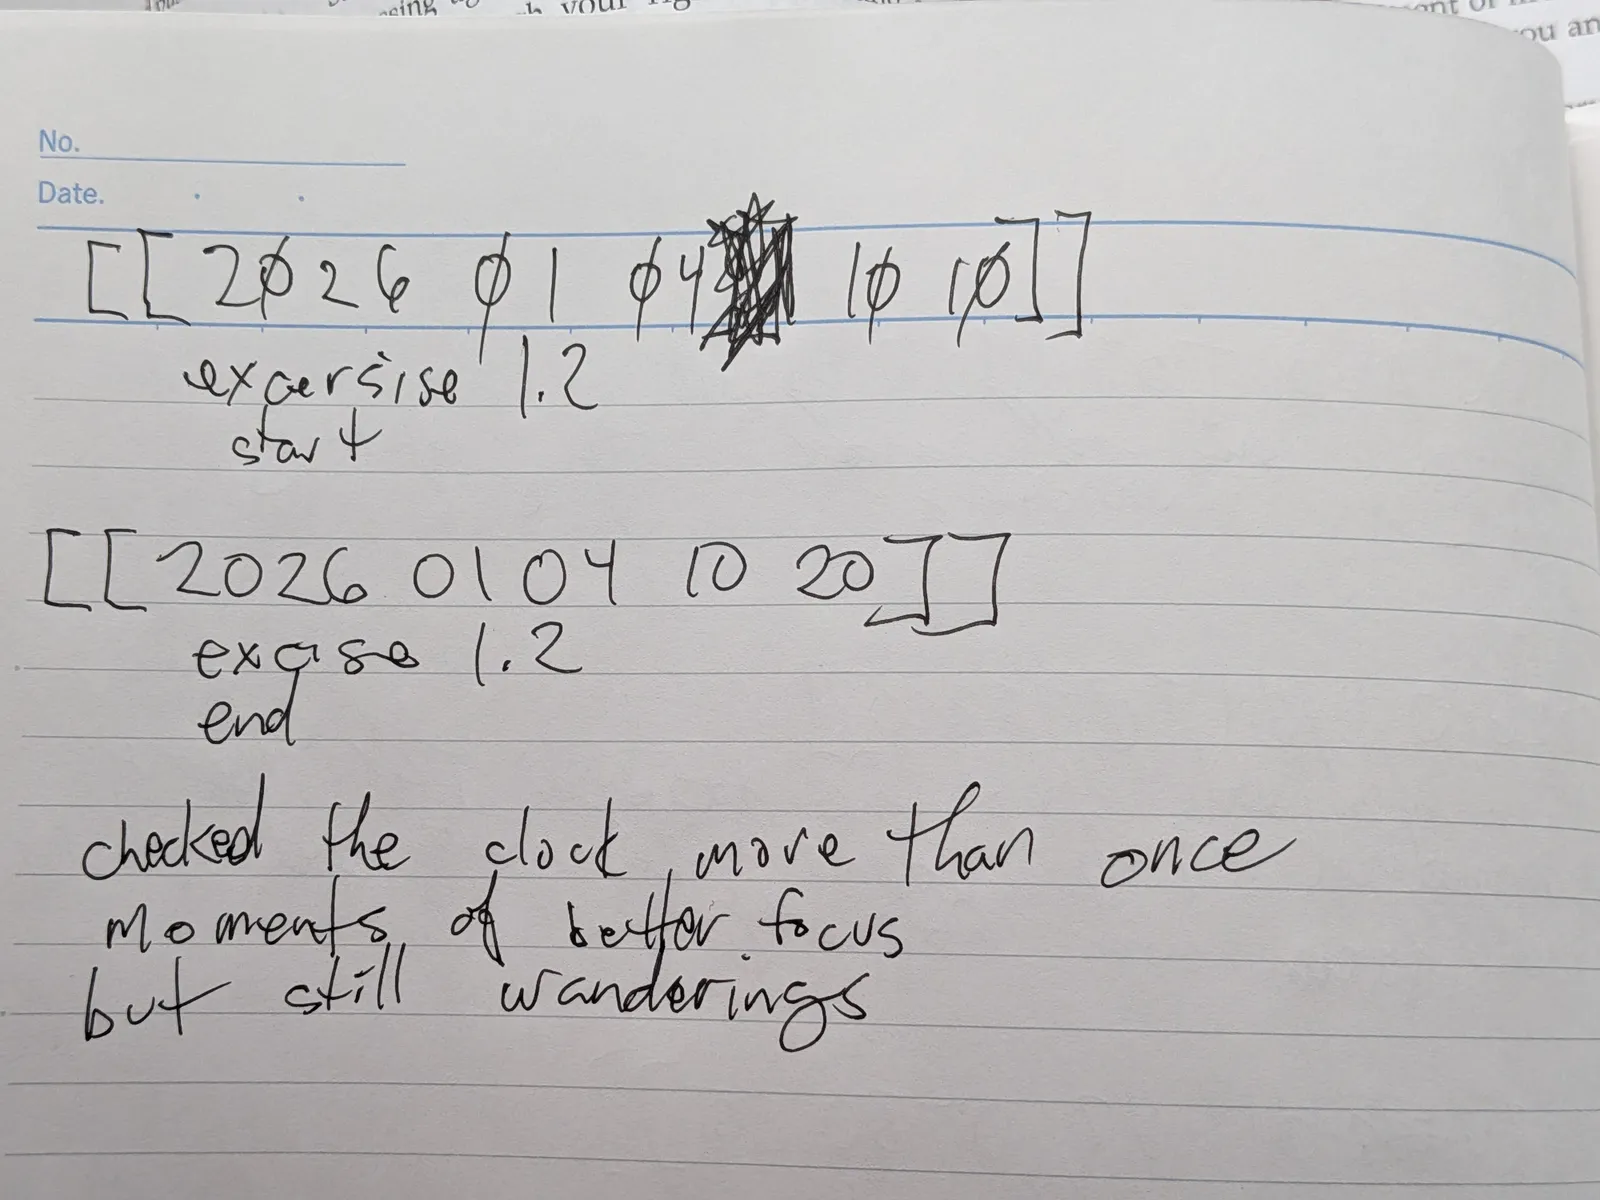 No.
Date.
[[2026 01 04 10 10]]
excersise 1.2
start
[[2026 01 04 10 20]]
excise 1.2
end
checked the clock more than once
moments of better focus
but still wanderings